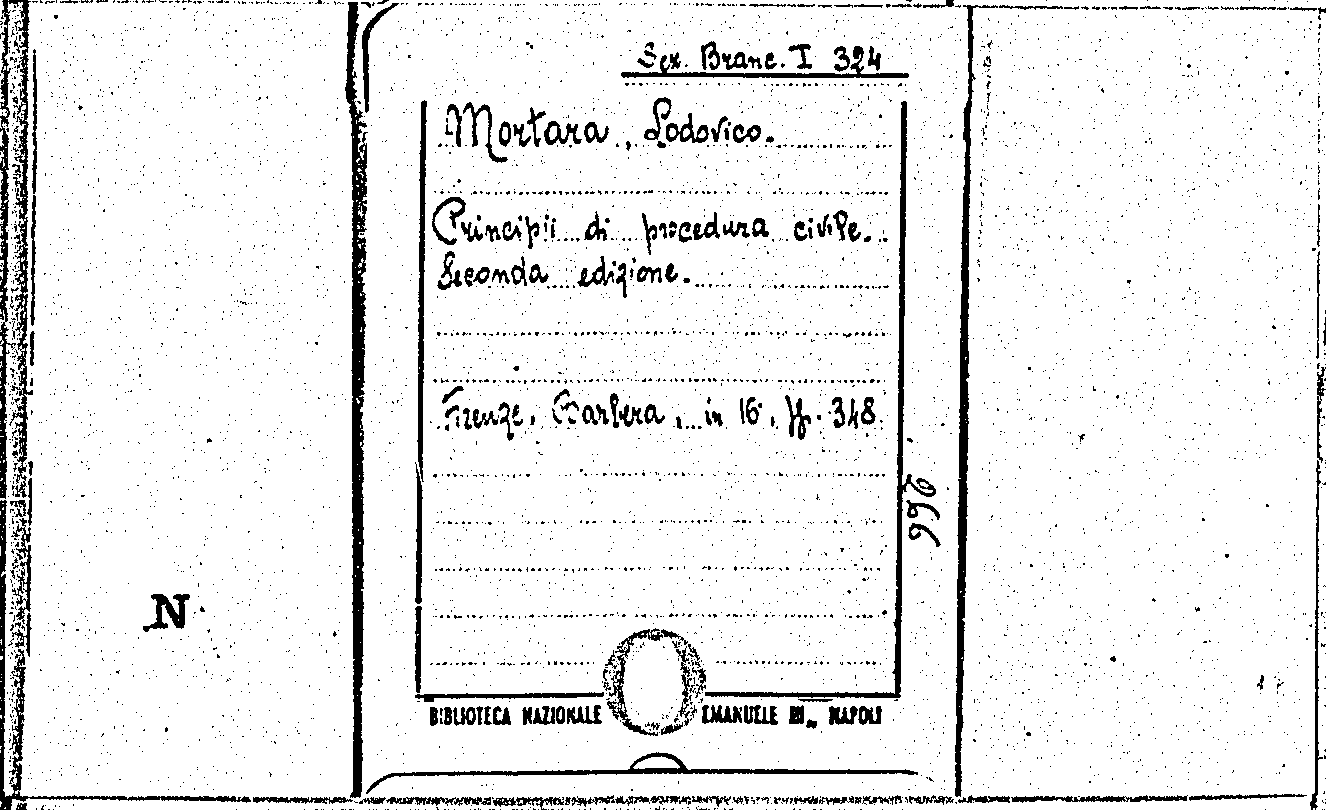 Sez. Branc. I 324
Mortara, Lodovico.
Principii di procedura civile.
Seconda edizione.
Firenze, Barbera, in 16°, pp. 348
266
N
BIBLIOTECA NAZIONALE EMANUELE III„ NAPOLI